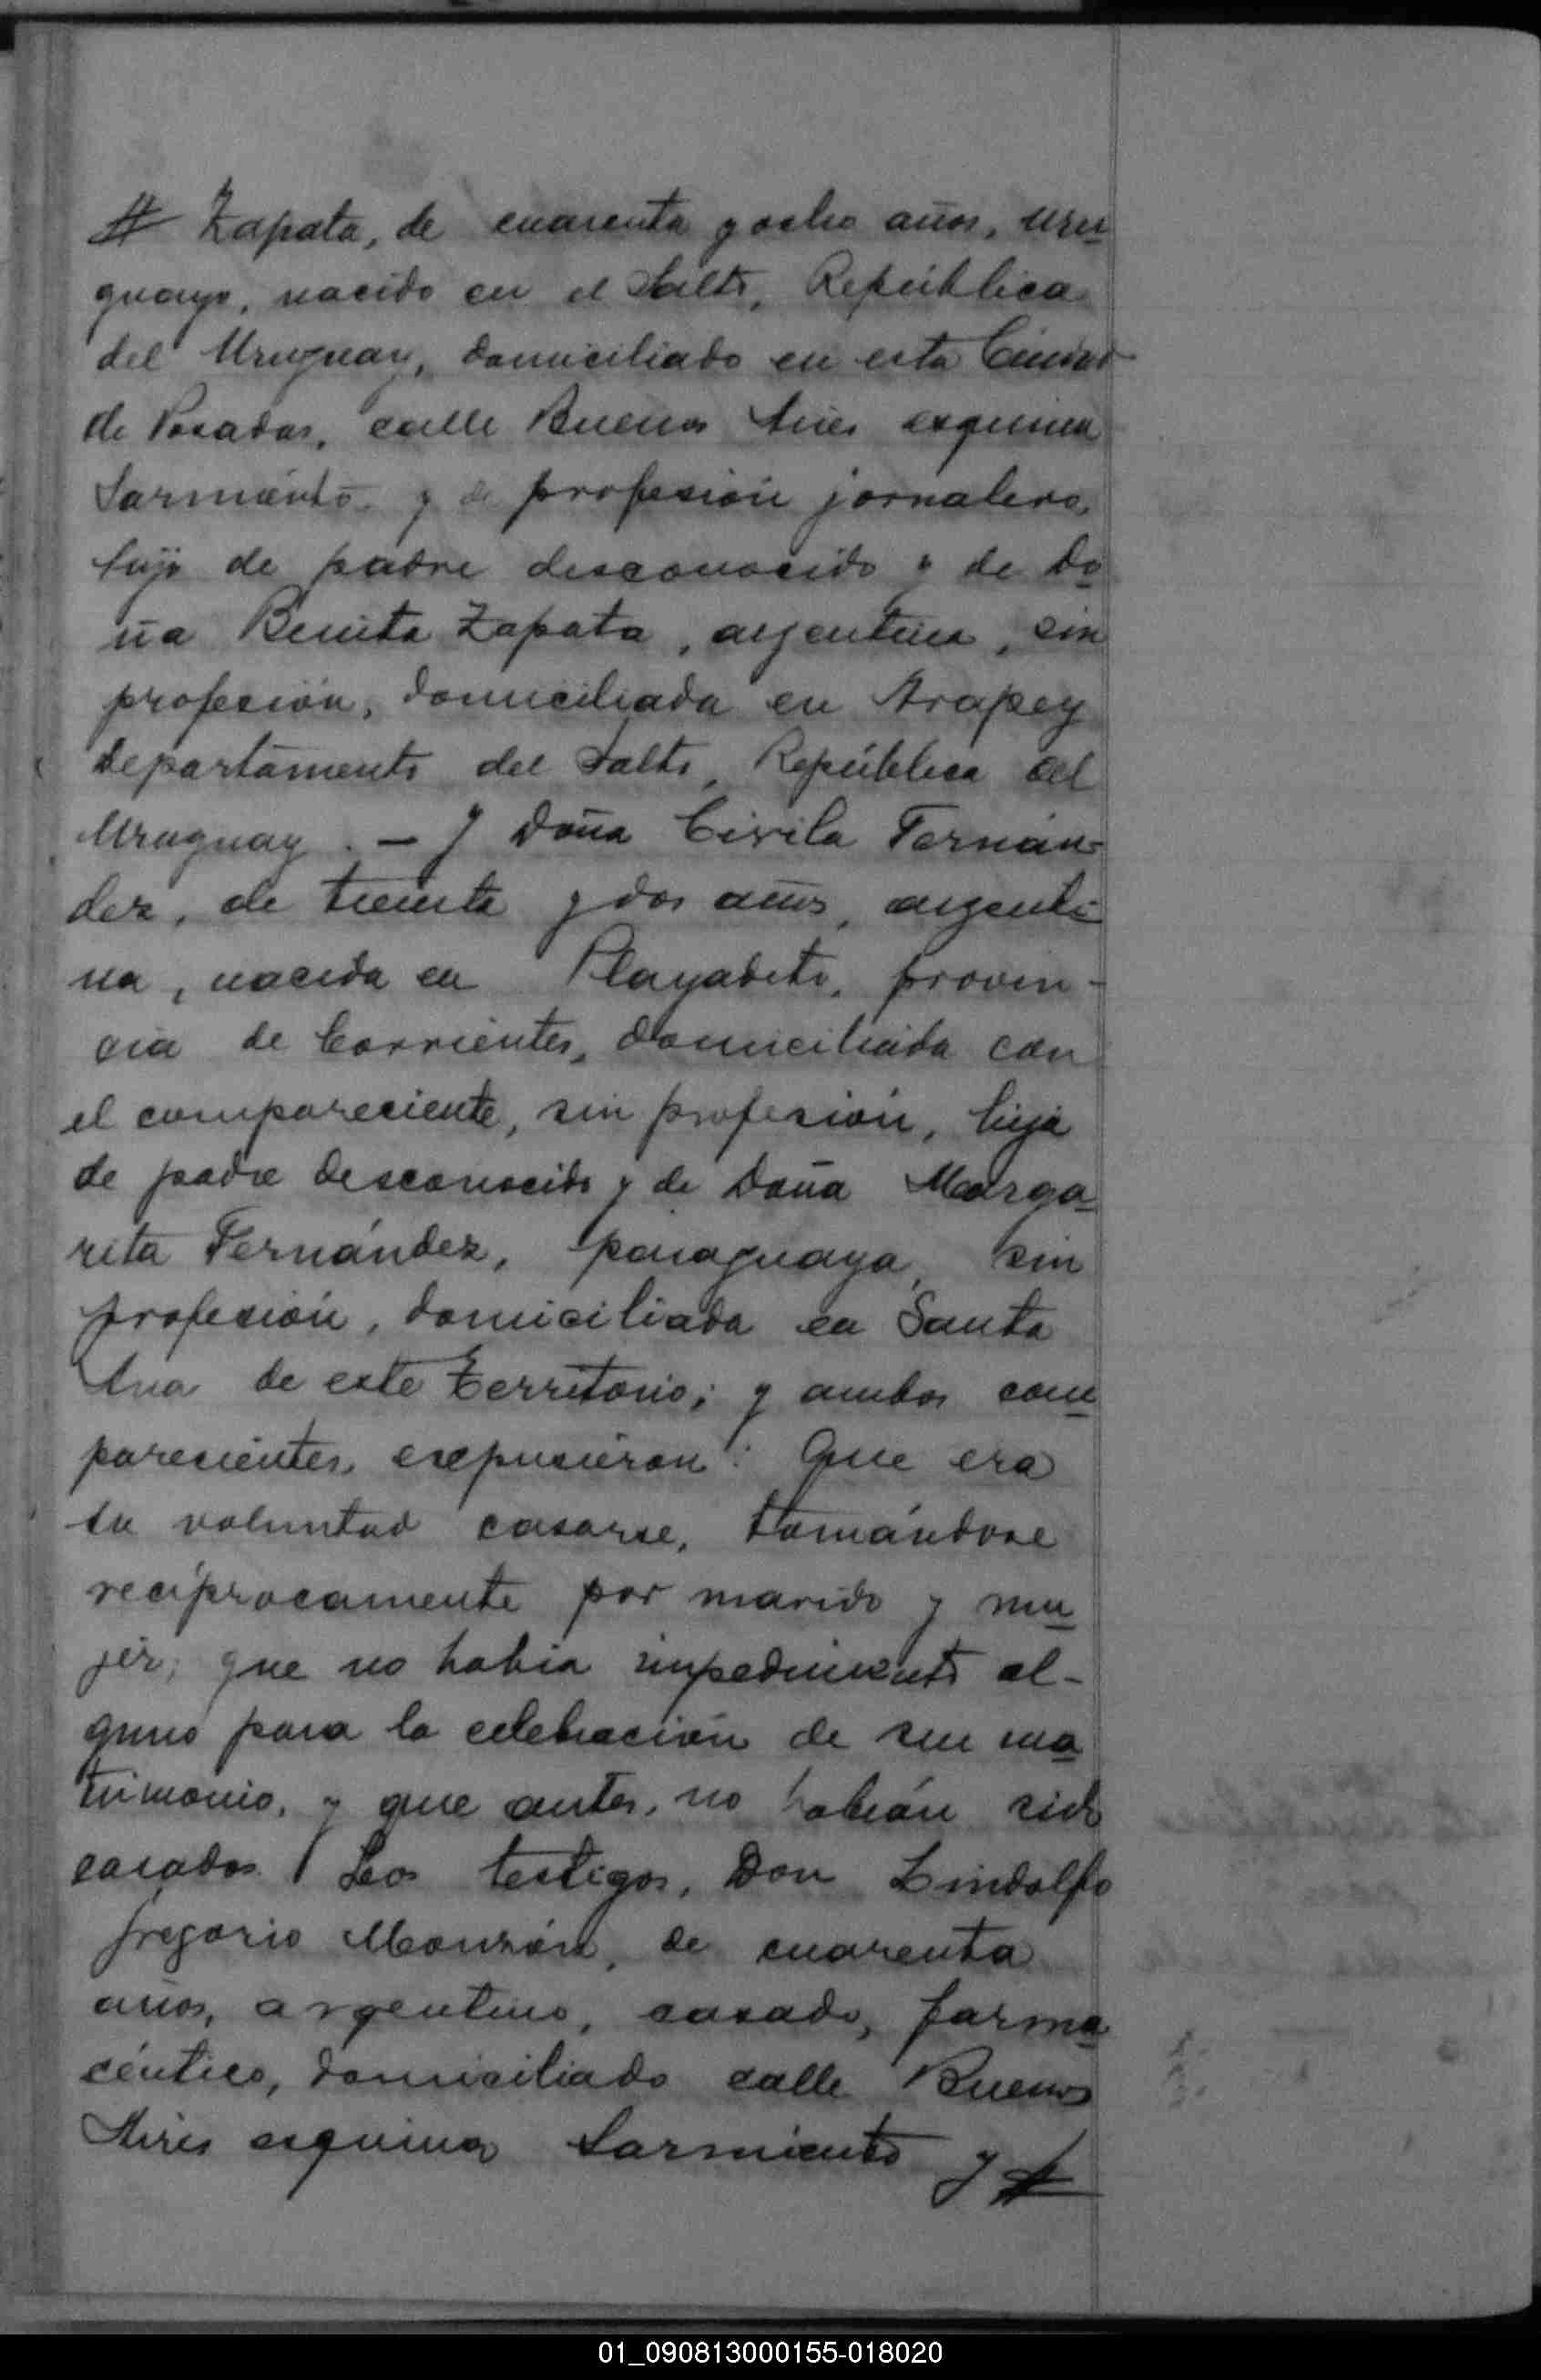 # Zapata, de cuarenta y ocho años, uru
guayo, nacido en el Salto, República
del Uruguay, domiciliado en esta Ciudad
de Posadas, calle Buenos Aires esquina
Sarmiento y de profesión jornalero,
hijo de padre desconocido y de Do
ña Benita Zapata, argentina, sin
profesión, domiciliada en Arapey
departamento del Salto, República del
Uruguay. — Y Doña Civila Fernán-
dez, de treinta y dos años, argenti
na, nacida en Playadito, provin-
cia de Corrientes, domiciliada con
el compareciente, sin profesión, hija
de padre desconocido y de Doña Marga
rita Fernández, paraguaya, sin
profesión, domiciliada en Santa
Ana de este territorio; y ambos com
parecientes, expusieron: Que era
su voluntad casarse, tomándose
recíprocamente por marido y mu
jer; que no había impedimento al-
guno para la celebración de su ma
trimonio, y que antes, no habían sido
casados. Los testigos, Don Lindolfo
Gregorio Monzón, de cuarenta
años, argentino, casado, farma
céutico, domiciliado calle Buenos
Aires esquina Sarmiento y #
01_090813000155-018020